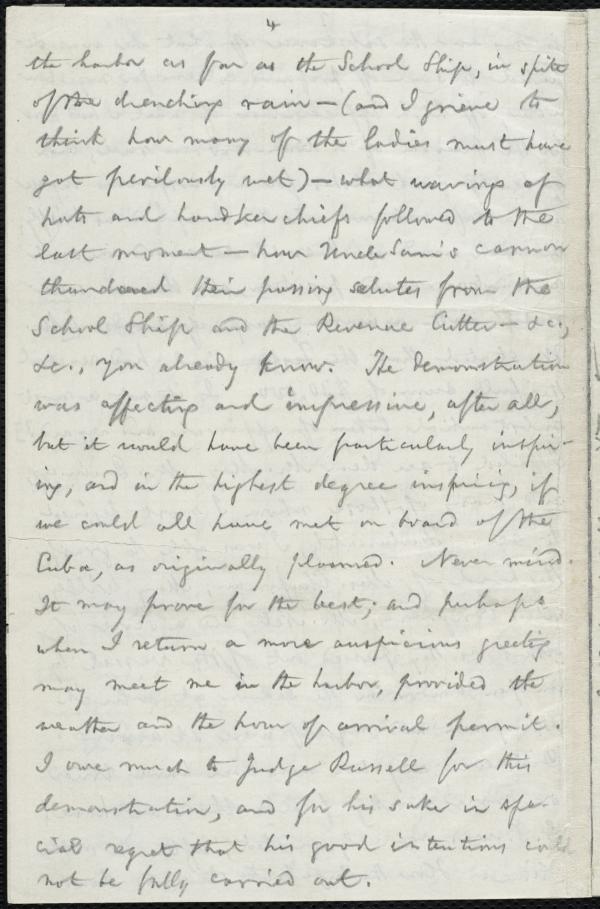 4
the harbor as far as the School Ship, in spite
of the drenching rain — (and I grieve to
think how many of the ladies must have
got perilously wet) — what wavings of
hats and handkerchiefs followed to the
last moment — how Uncle Sam's cannon
thundered their passing salutes from the
School Ship and the Revenue Cutter — &c.,
&c., you already know. The demonstration
was affecting and impressive, after all,
but it would have been particularly inspir-
ing, and in the highest degree inspiring, if
we could all have met on board of the
Cuba, as originally planned. Never mind.
It may prove for the best; and perhaps
when I return a more auspicious greeting
may meet me in the harbor, provided the
weather and the hour of arrival permit.
I owe much to Judge Russell for this
demonstration, and for his sake in spe-
cial regret that his good intentions could
not be fully carried out.